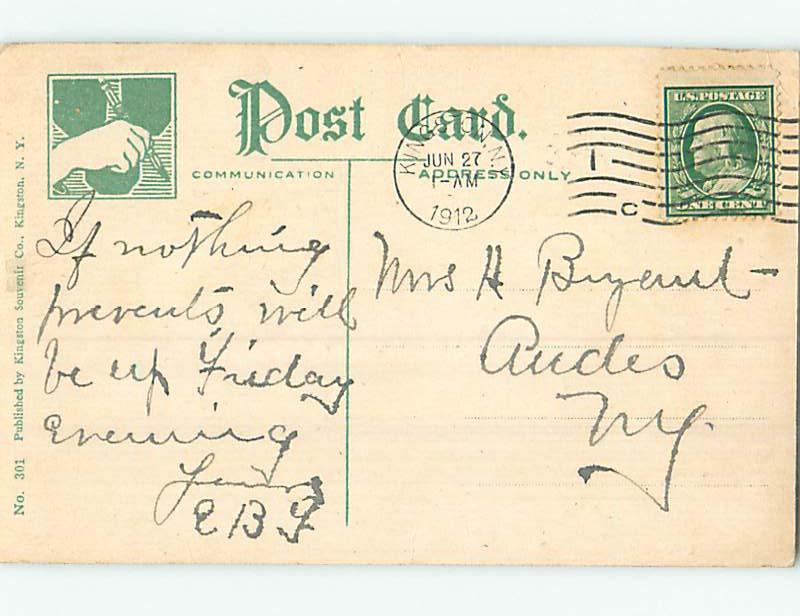 Post Card.
COMMUNICATION
ADDRESS ONLY
KINGSTON, N.Y.
JUN 27
1-AM
1912
1
C
U.S. POSTAGE
ONE CENT
If nothing
prevents will
be up Friday
Evening
Yours
E B
Mrs H Bryant
Andes
N.Y.
No. 301 Published by Kingston Souvenir Co., Kingston, N. Y.